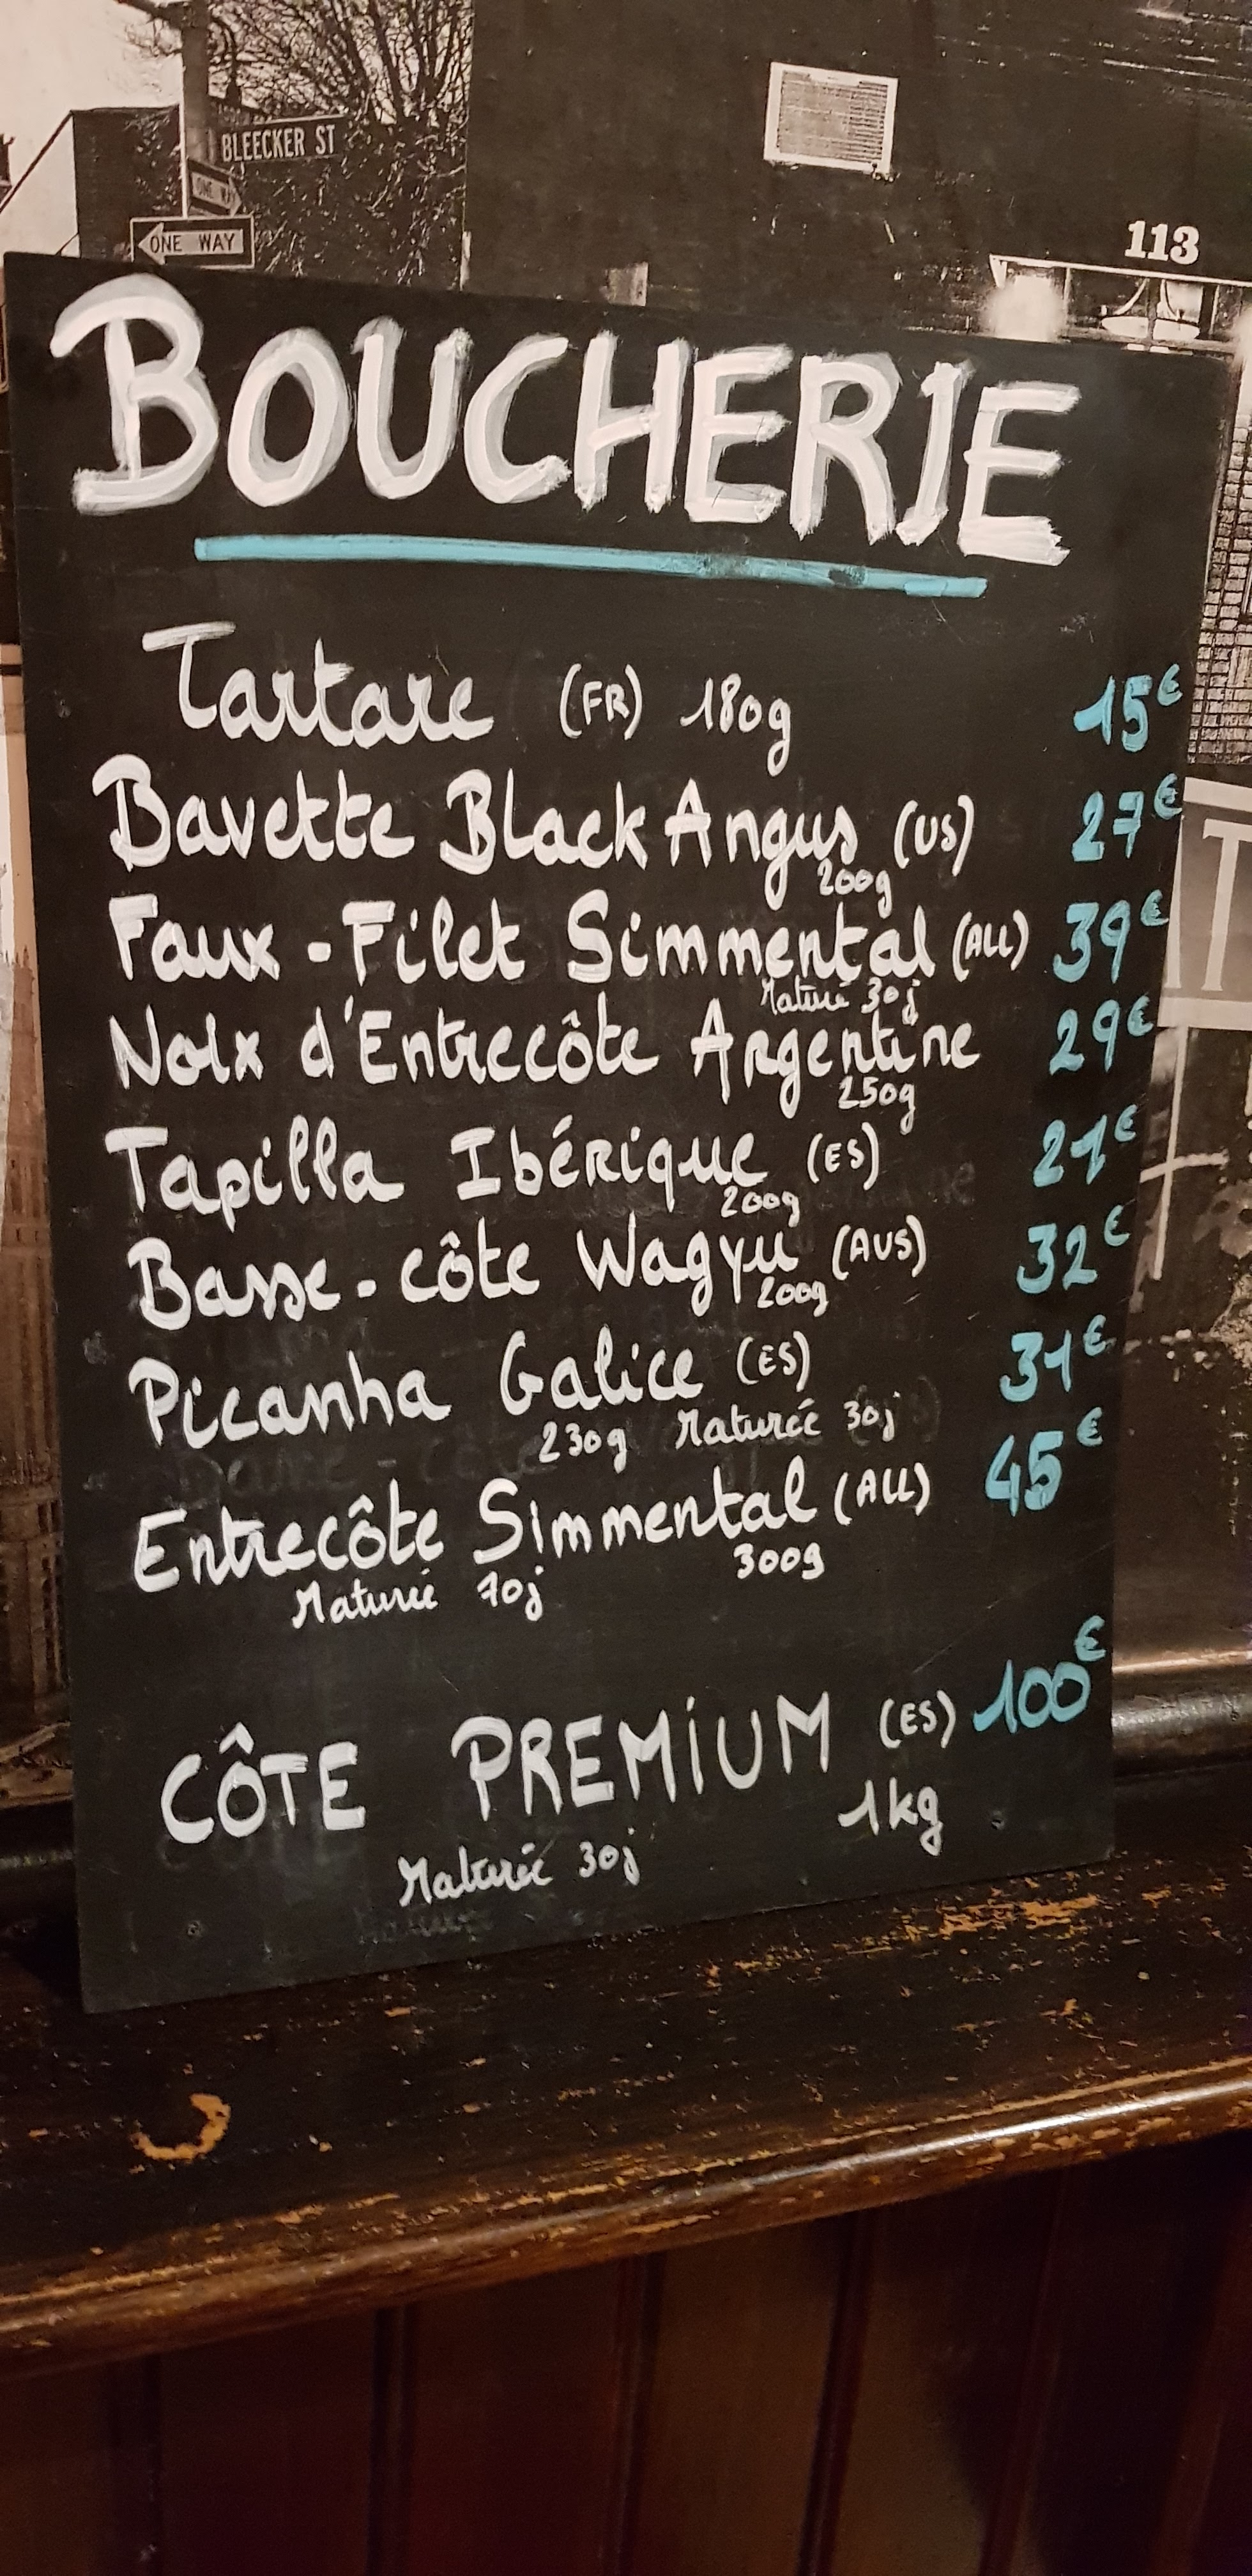 BLEECKER ST
ONE WAY
ONE WAY
113
BOUCHERIE
Tartare (FR) 180g 15€
Bavette Black Angus (US) 27€
200g
Faux-Filet Simmental (ALL) 39€
Maturé 30j
Noix d'Entrecôte Argentine 29€
250g
Tapilla Ibérique (ES) 21€
200g
Basse-côte Wagyu (AUS) 32€
200g
Picanha Galice (ES) 31€
230g Maturée 30j
Entrecôte Simmental (ALL) 45€
Maturée 70j 300g
CÔTE PREMIUM (ES) 100€
1kg
Maturée 30j